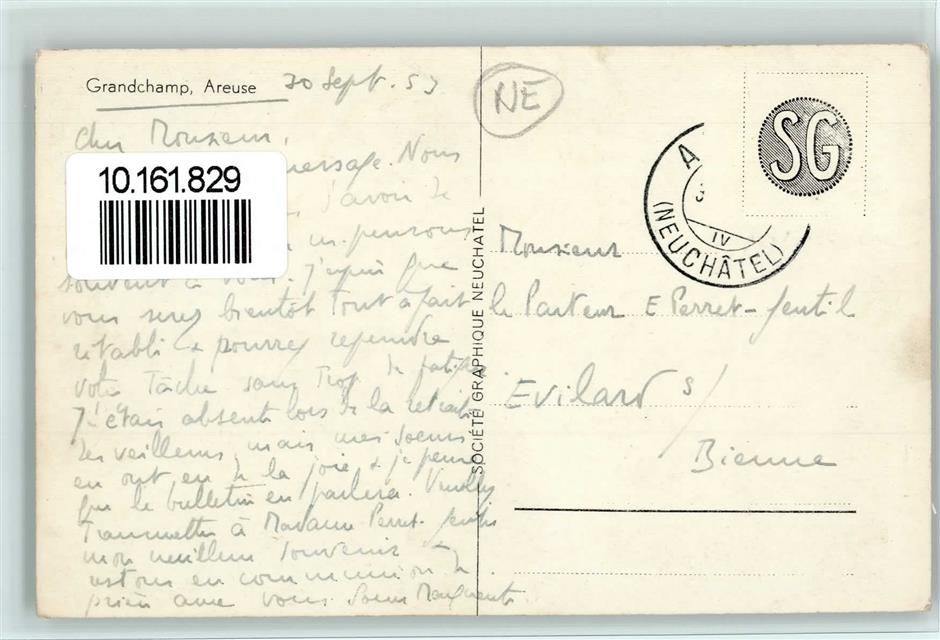 Grandchamp, Areuse
30 Sept. 53
NE
SG
A
IV
(NEUCHÂTEL)
Cher Monsieur,
message. Nous
10.161.829
j'avoir de
pensons
souvent à vous. J'espère que
vous serez bientôt tout à fait
rétabli & pourrez reprendre
votre tâche sans trop de fatigue
J'étais absente lors de la retraite
des veilleurs, mais mes soeurs
en ont eu de la joie & je pense
que le bulletin en parlera. Veuillez
transmettre à Madame Perret-Gentil
mon meilleur souvenir
restons en communion de
prière avec vous. Soeur Marguerite
SOCIÉTÉ GRAPHIQUE NEUCHATEL
Monsieur
le Pasteur E Perret-Gentil
Evilard s/
Bienne